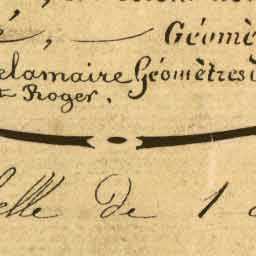 Géomè
elamaire Géomètres
et Roger.
elle de 1 à